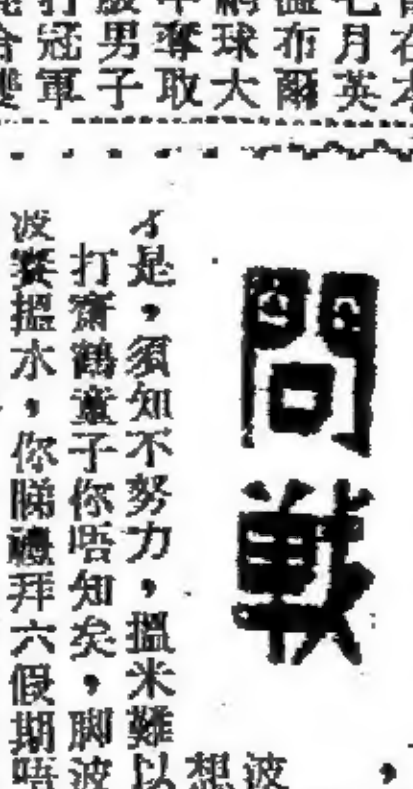 在本
七月英
溫布爾
網球大
中奪取
男子
打冠軍
合雙
問戰
，
波
想
才是，須知不努力，搵米難以
打齋鶴童子你唔知矣，脚波
波賽搵水，你睇禮拜六假期唔